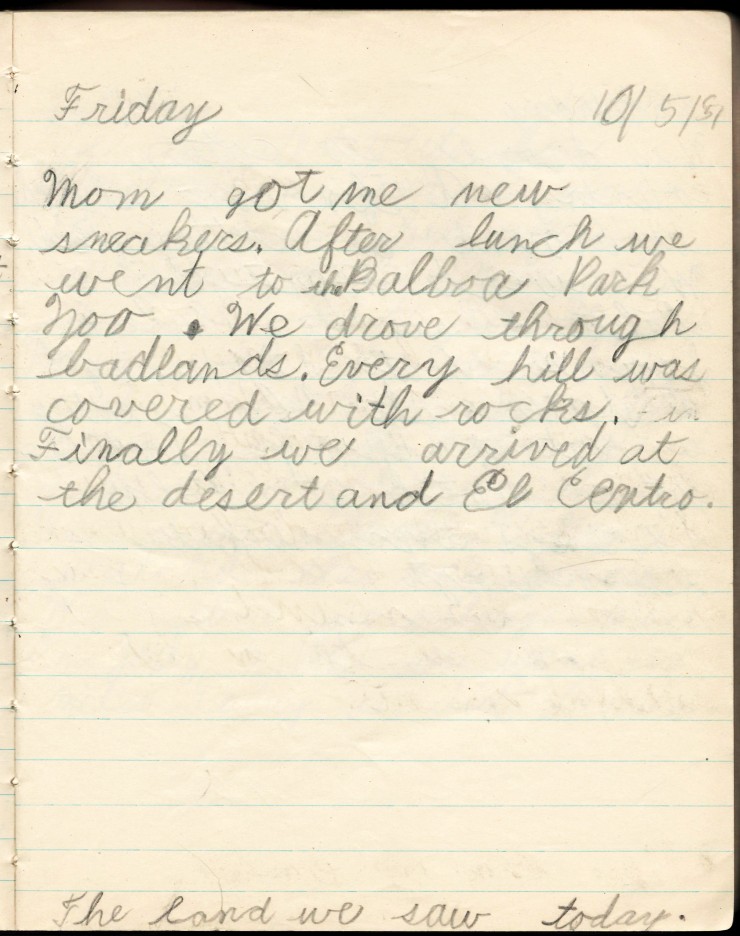 Friday 10/5/51
Mom got me new
sneakers. After lunch we
went to the Balboa Park
Zoo. We drove through
badlands. Every hill was
covered with rocks.
Finally we arrived at
the desert and El Centro.
The land we saw today.